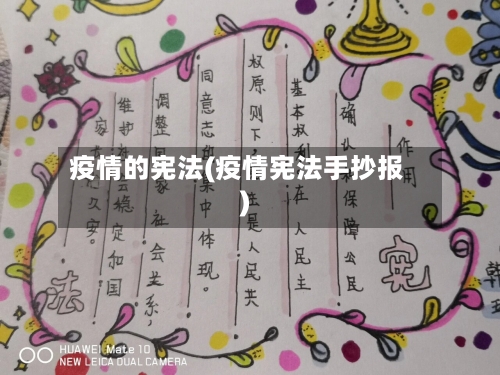 疫情的宪法(疫情宪法手抄报
)
作用
确认和保障公民
基本权利 在人民主
权原则下,在是人民共
同意志的集中体现。
调整国家 社会关系,
维护社会稳定和国
家 久安。
宪
法
韩
HUAWEI Mate 10
NEW LEICA DUAL CAMERA